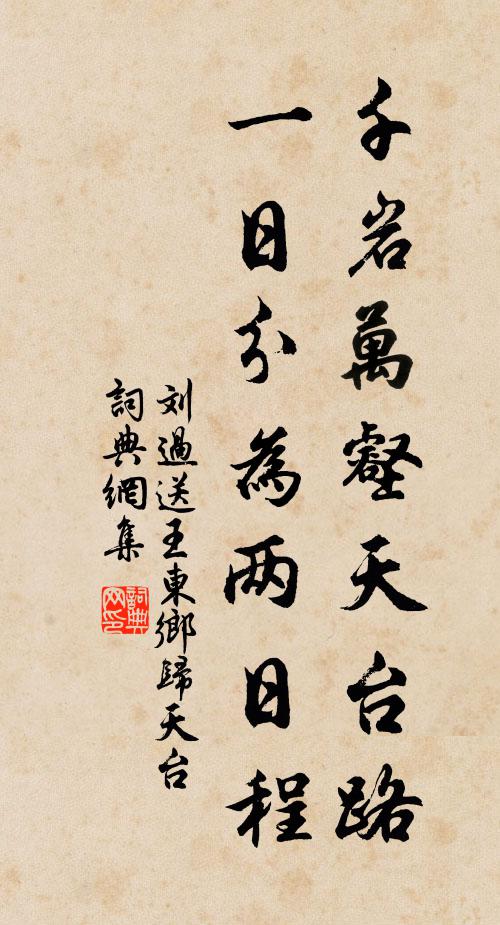 千岩萬壑天台路
一日分為两日程
刘過送王東鄉歸天台
詞典網集
詞典
网印